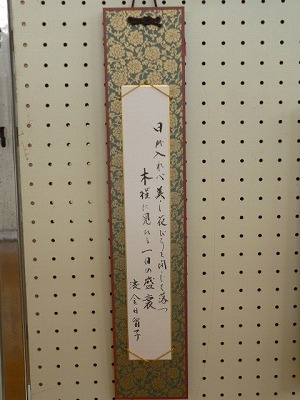 日が入れば美し花びらを閉じて落つ
木槿に 一日の盛衰